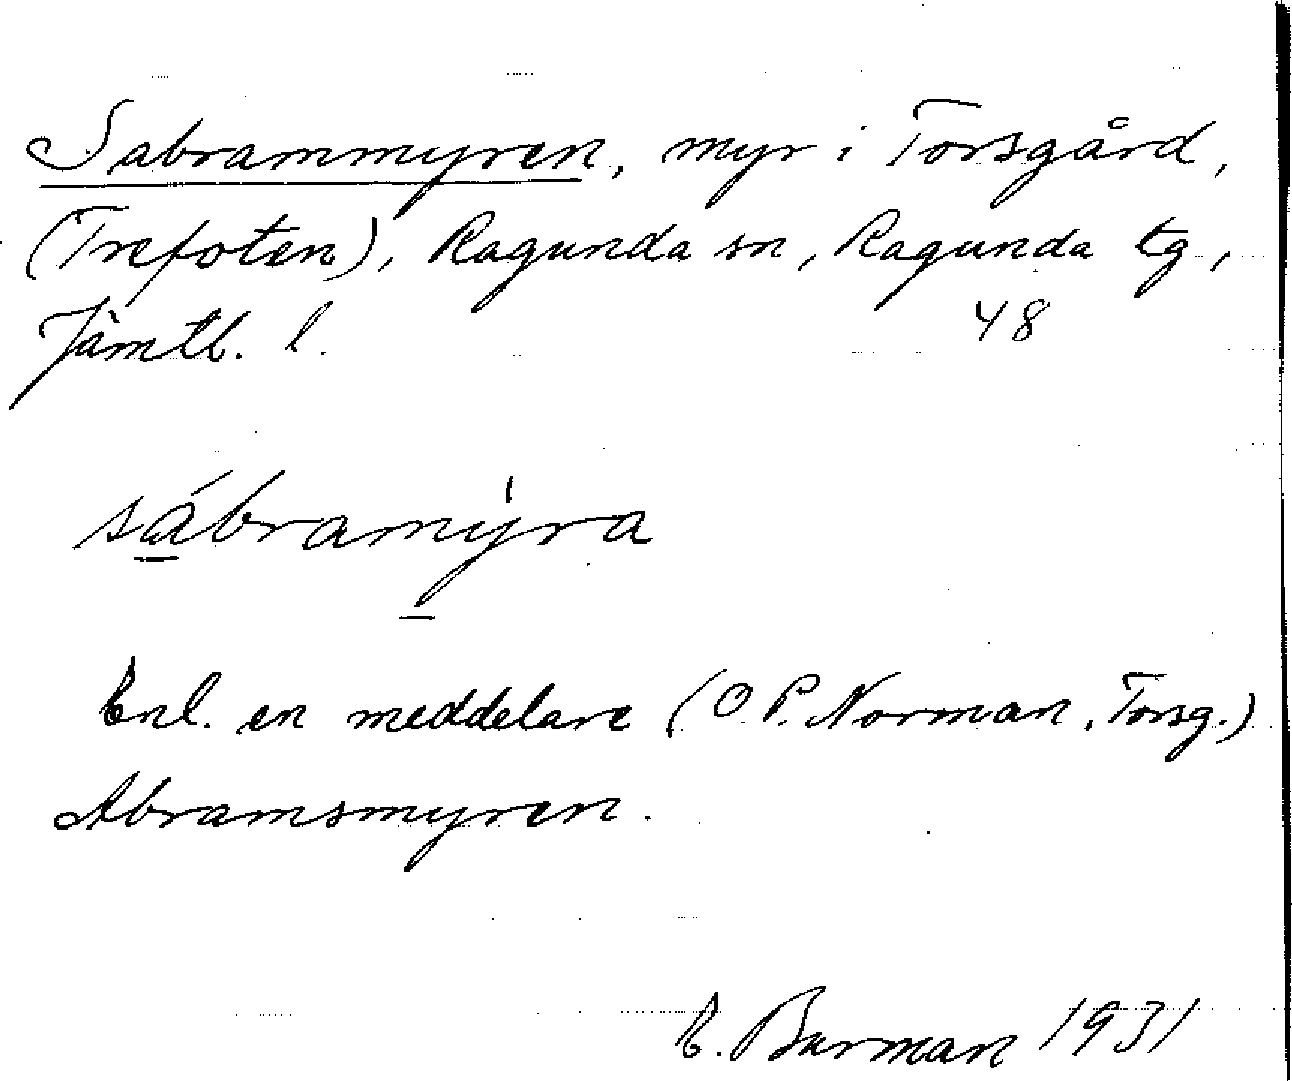 Sabrammyren, myr i Torsgård,
(Trefoten), Ragunda sn, Ragunda tg,
Jämtl. l. 48
sábramýra
Enl. en meddelare (O.P. Norman, Torsg.)
Abramsmyren.
E. Burman 1931